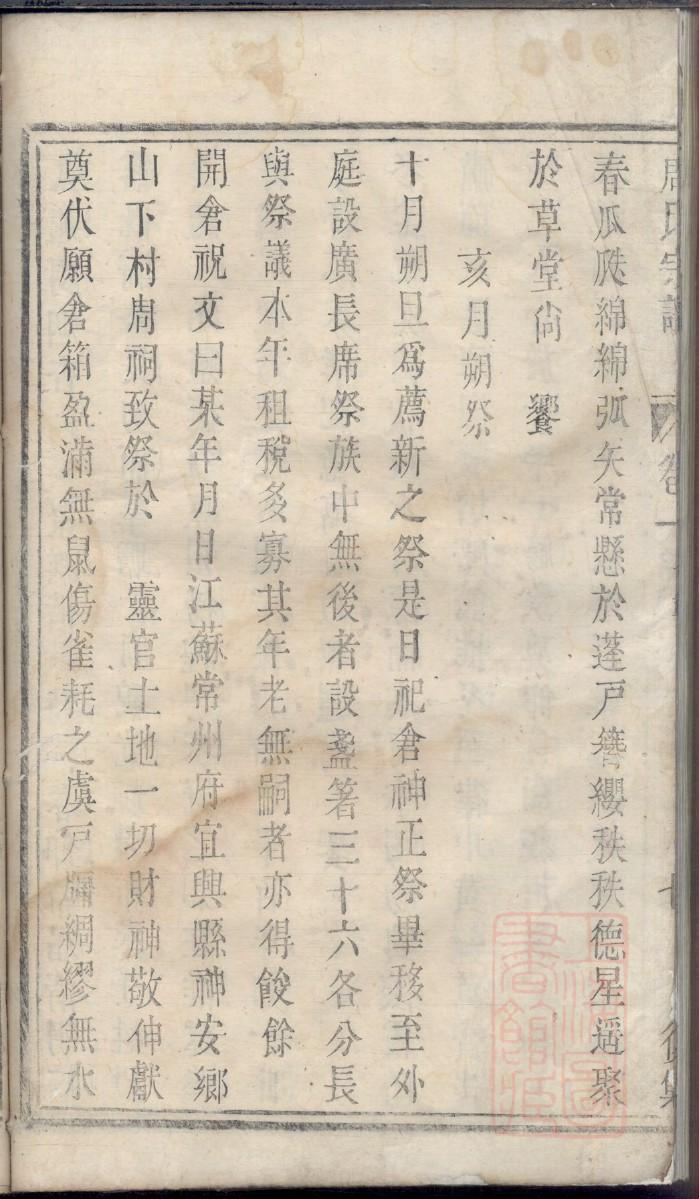 周氏宗譜 卷一 七
春瓜瓞綿綿弧矢常懸於蓬戸簪纓秩秩德星遥聚
於草堂尙 饗
亥月朔祭
十月朔旦爲薦新之祭是日祀倉神正祭畢移至外
庭設廣長席祭族中無後者設盞箸三十六各分長
與祭議本年租稅多寡其年老無嗣者亦得餕餘
開倉祝文曰某年月日江蘇常州府宜興縣神安鄉
山下村周祠致祭於 靈官土地一切財神敬伸獻
奠伏願倉箱盈滿無鼠傷雀耗之虞戸牖綢繆無水